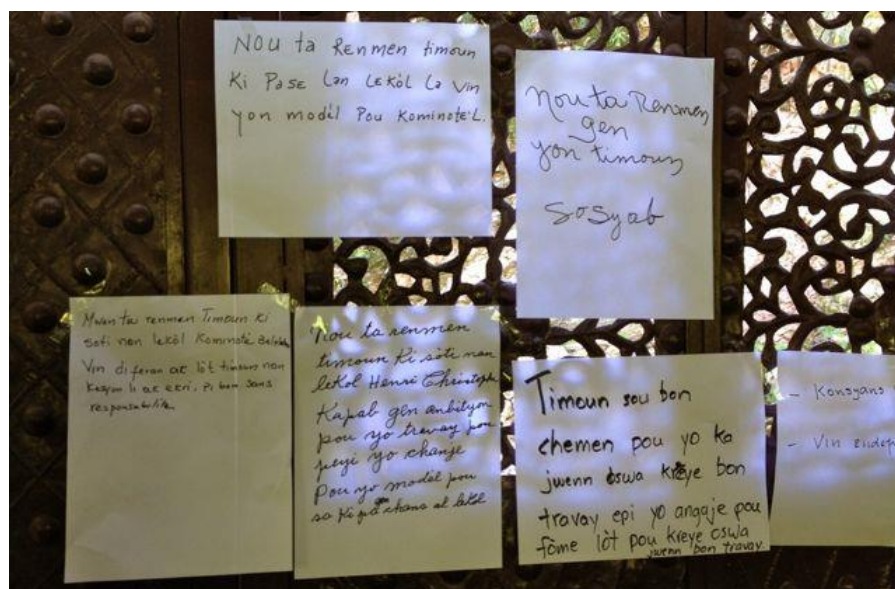 NOU ta Renmen timoun
Ki Pase Lan LeKòl La Vin
yon modèl Pou Kominote L.
Nou ta Renmen
gen
yon timoun
Sosyab
Mwen ta renmen Timoun ki
soti nan lekòl Kominotè
Vin diferan ak lòt timoun nan
kesyon li ak ekri, Pi bon sans
responsabilite.
Nou ta renmen
timoun Ki soti nan
leKol Henri Christophe
Kapab gen anbityon
pou yo travay pou
peyi yo chanje
Pou yo modèl pou
sa Ki pa chans al lekòl
Timoun sou bon
chemen pou yo ka
jwenn oswa kreye bon
travay epi yo angaje pou
fòme lòt pou kreye oswa
jwenn bon travay.
- Konsyans
- Vin